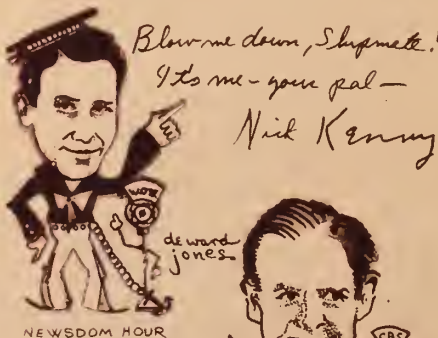 Blow me down, Shipmate!
It's me - your pal -
Nick Kenny
WOR
deward
jones
CBS
NEWSDOM HOUR